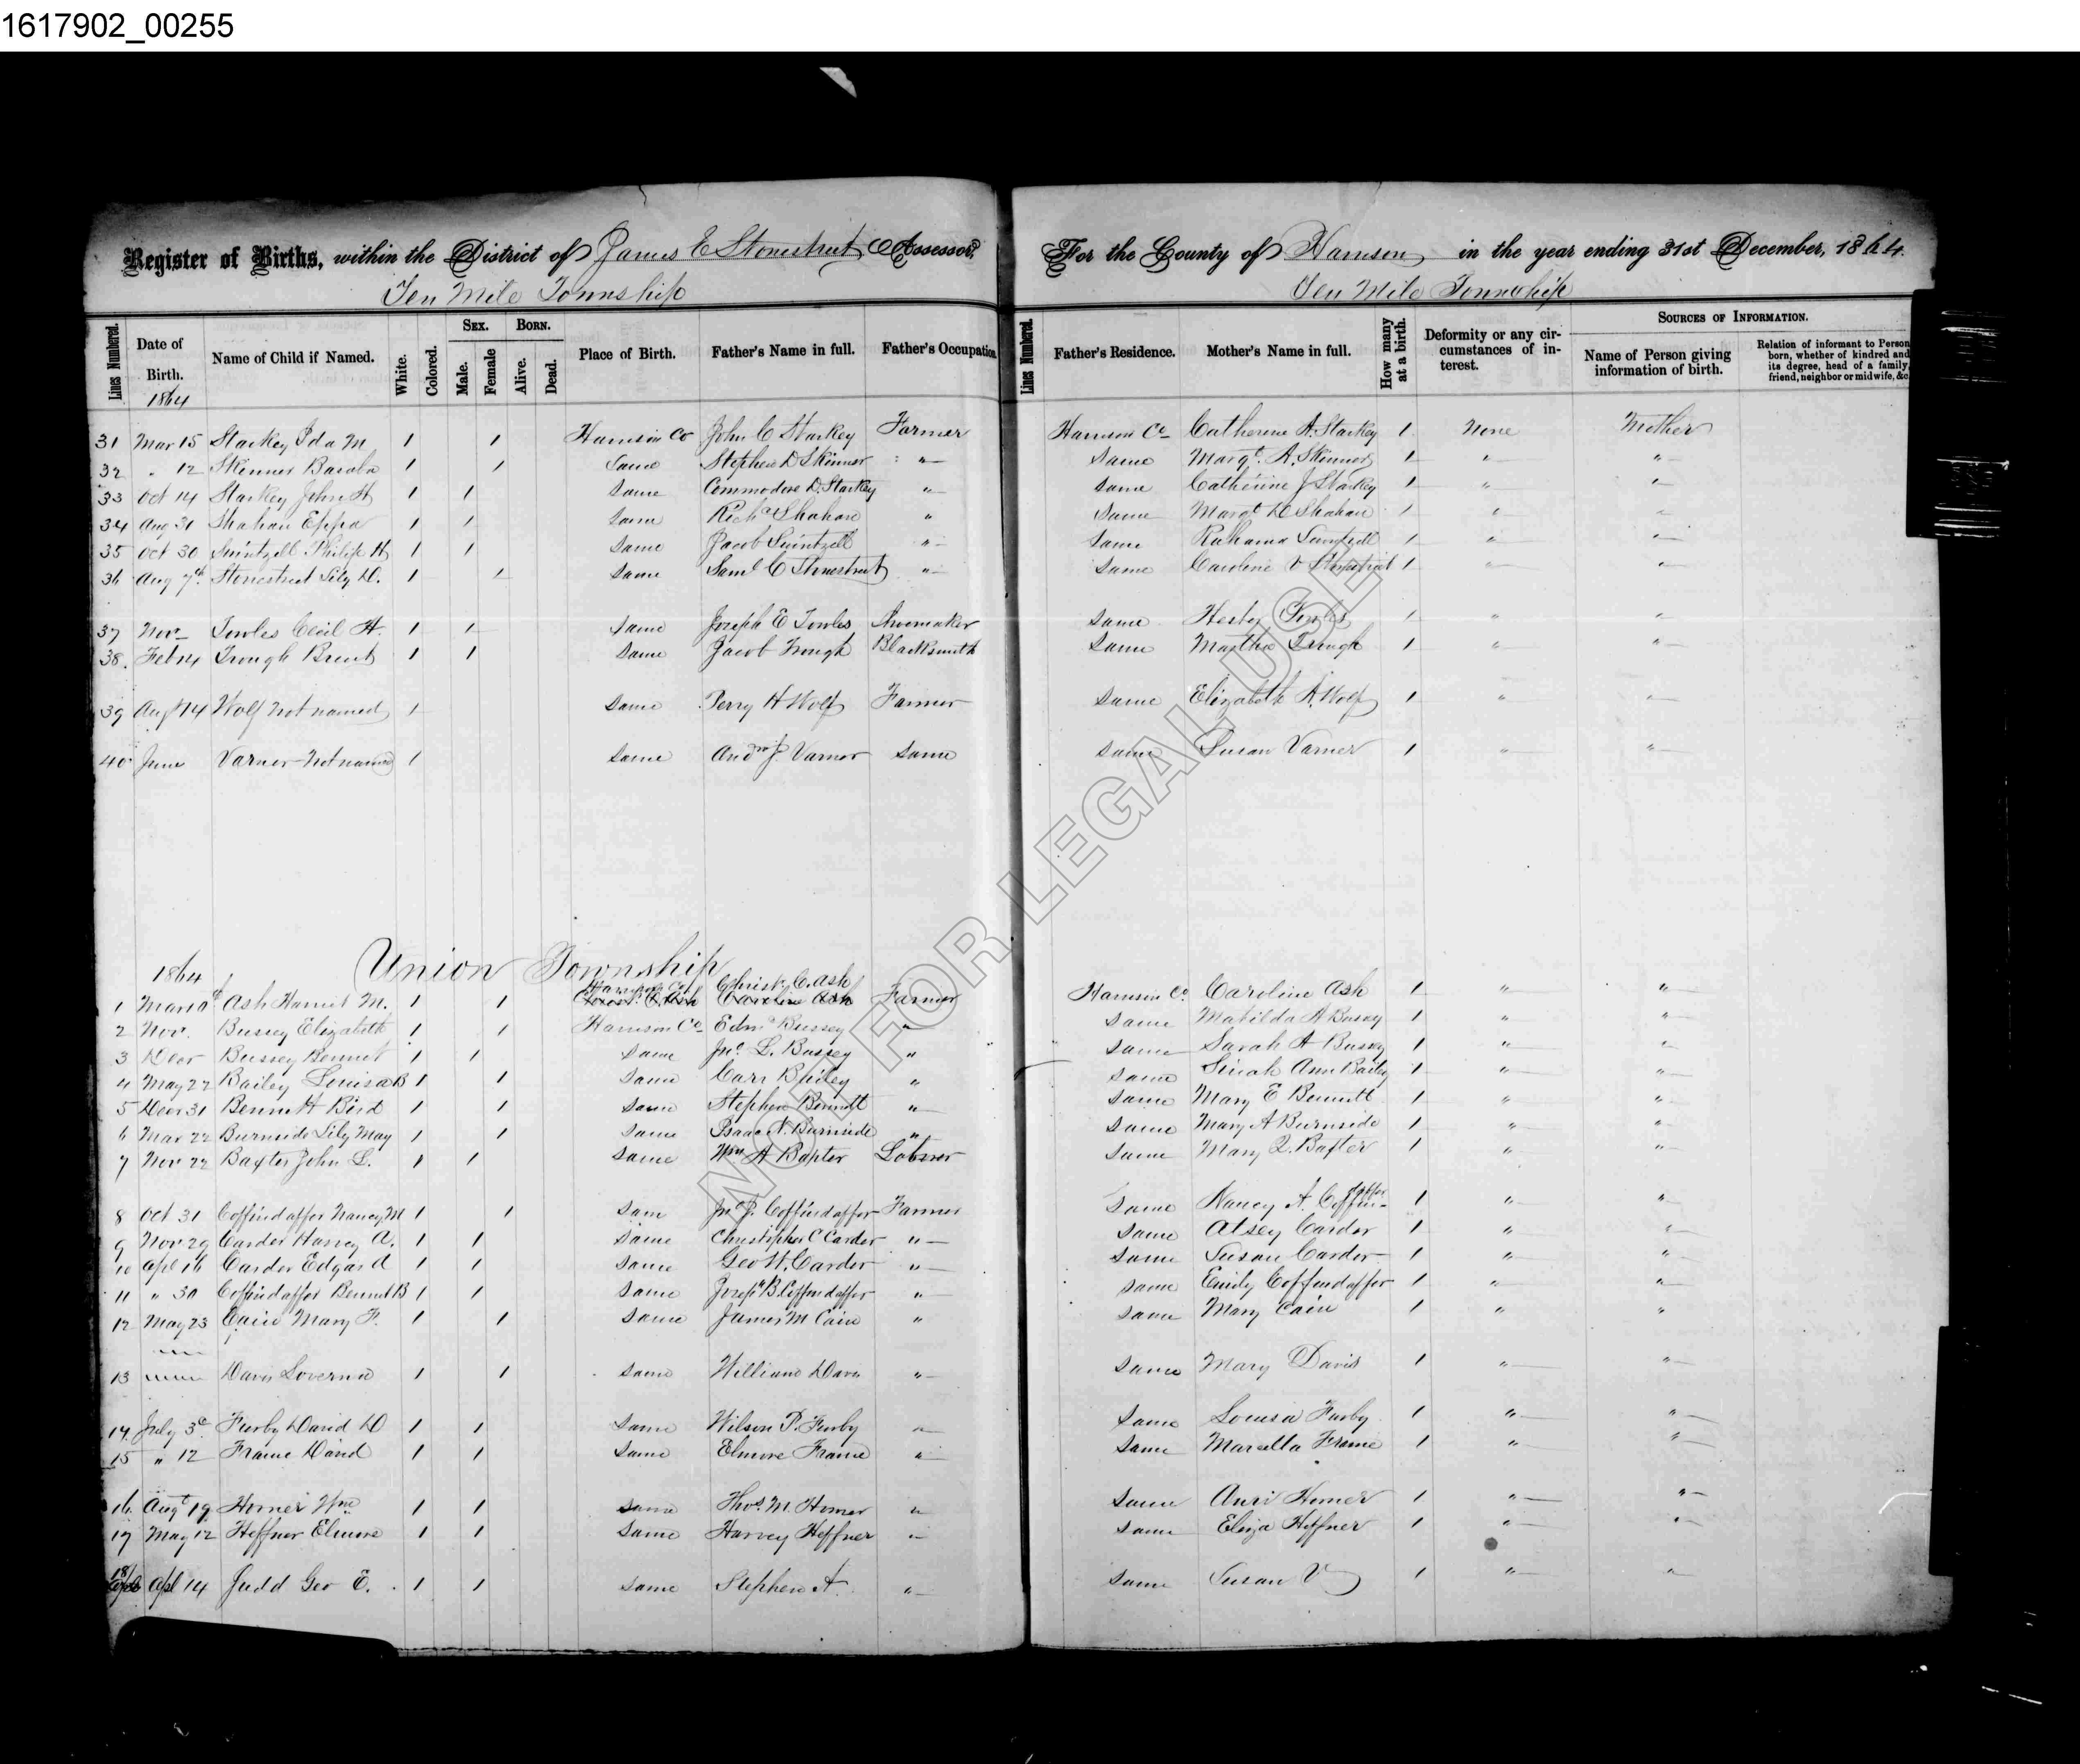 1617902_00255
Register of Births, within the District of James E Stonestreet Assessor, For the County of Harrison in the year ending 31st December, 1864.
Ten Mile Township Ten Mile Township
Lines Numbered. Date of Birth. Name of Child if Named. White. Colored. Sex. Male. Female Born. Alive. Dead. Place of Birth. Father's Name in full. Father's Occupation. Lines Numbered. Father's Residence. Mother's Name in full. How many at a birth. Deformity or any circumstances of interest. Sources of Information. Name of Person giving information of birth. Relation of informant to Person born, whether of kindred and its degree, head of a family, friend, neighbor or midwife, &c.
1864
31 Mar 15 Starkey Ida M 1 1 Harrison Co John C Starkey Farmer Harrison Co Catherine A. Starkey 1 None Mother
32 " 12 Skinner 1 1 Same Stephen D Skinner " Same Margt. A. Skinner 1 " "
33 Oct 14 Starkey John H 1 1 Same Commodore D. Starkey " Same Catherine J Starkey 1 " "
34 Aug 31 Shahan Eppa 1 1 Same Richd Shahan " Same Margt D Shahan 1 " "
35 Oct 30 Swintzell Philip H 1 1 Same Jacob Swintzell " Same Ruhama Swintzell 1 " "
36 Aug 7th Stonestreet Lily D. 1 1 Same Saml C Stonestreet " Same Caroline V Stonestreet 1 " "
37 Nov Towles Cecil H. 1 1 Same Joseph E Towles Shoemaker Same Hesty Towles 1 " "
38. Feb 14 Trough Brent 1 1 Same Jacob Trough Blacksmith Same Martha Trough 1 " "
39 Augt 14 Wolf not named 1 Same Perry H Wolf Farmer Same Elizabeth A. Wolf 1 " "
40 June Varner not named 1 Same Andw J. Varner Same Same Susan Varner 1 " "
Union Township
1864
1 Mar Ash Harriet M. 1 1 Harrison Co. Christ. C. Ash Farmer Harrison Co. Caroline Ash 1 " "
Caroline Ash
2 Nov. Bussey Elizabeth 1 1 Harrison Co Edmd Bussey " Same Matilda A Bussey 1 " "
3 Decr Bussey Bennet 1 1 Same Jno. L. Bussey " Same Sarah A Bussey 1 " "
4 May 22 Bailey Louisa B 1 1 Same Carr Bailey " Same Sinah Ann Bailey 1 " "
5 Decr 31 Bennett Bird 1 1 Same Stephen Bennett " Same Mary E Bennett 1 " "
6 Mar 22 Burnside Lily May 1 1 Same Isaac N. Burnside " Same Mary A Burnside 1 " "
7 Nov 22 Baxter John L. 1 1 Same Wm A Baxter Laborer Same Mary Q. Baxter 1 " "
8 Oct 31 Coffindaffer Nancy M 1 1 Same Jno J. Coffindaffer Farmer Same Nancy A. Coffindaffer 1 " "
9 Nov 29 Carder Harvey A. 1 1 Same Christopher C Carder " Same Atsey Carder 1 " "
10 Apl 16 Carder Edgar A 1 1 Same Geo W. Carder " Same Susan Carder 1 " "
11 " 30 Coffindaffer Bennet B 1 1 Same Joseph B. Coffindaffer " Same Emily Coffindaffer 1 " "
12 May 23 Cain Mary F. 1 1 Same James M Cain " Same Mary Cain 1 " "
13 Davis Loverna 1 1 Same William Davis " Same Mary Davis 1 " "
14 July 3d Furby David D 1 1 Same Wilson P. Furby " Same Louisa Furby 1 " "
15 " 12 Frame David 1 1 Same Elmore Frame " Same Marcella Frame 1 " "
16 Augt 19 Horner Wm 1 1 Same Thos. M Horner " Same Anri Horner 1 " "
17 May 12 Heffner Elmore 1 1 Same Harvey Heffner " Same Eliza Heffner 1 " "
18 Apl 14 Judd Geo E. 1 1 Same Stephen A. " Same Susan V 1 " "
NOT FOR LEGAL USE